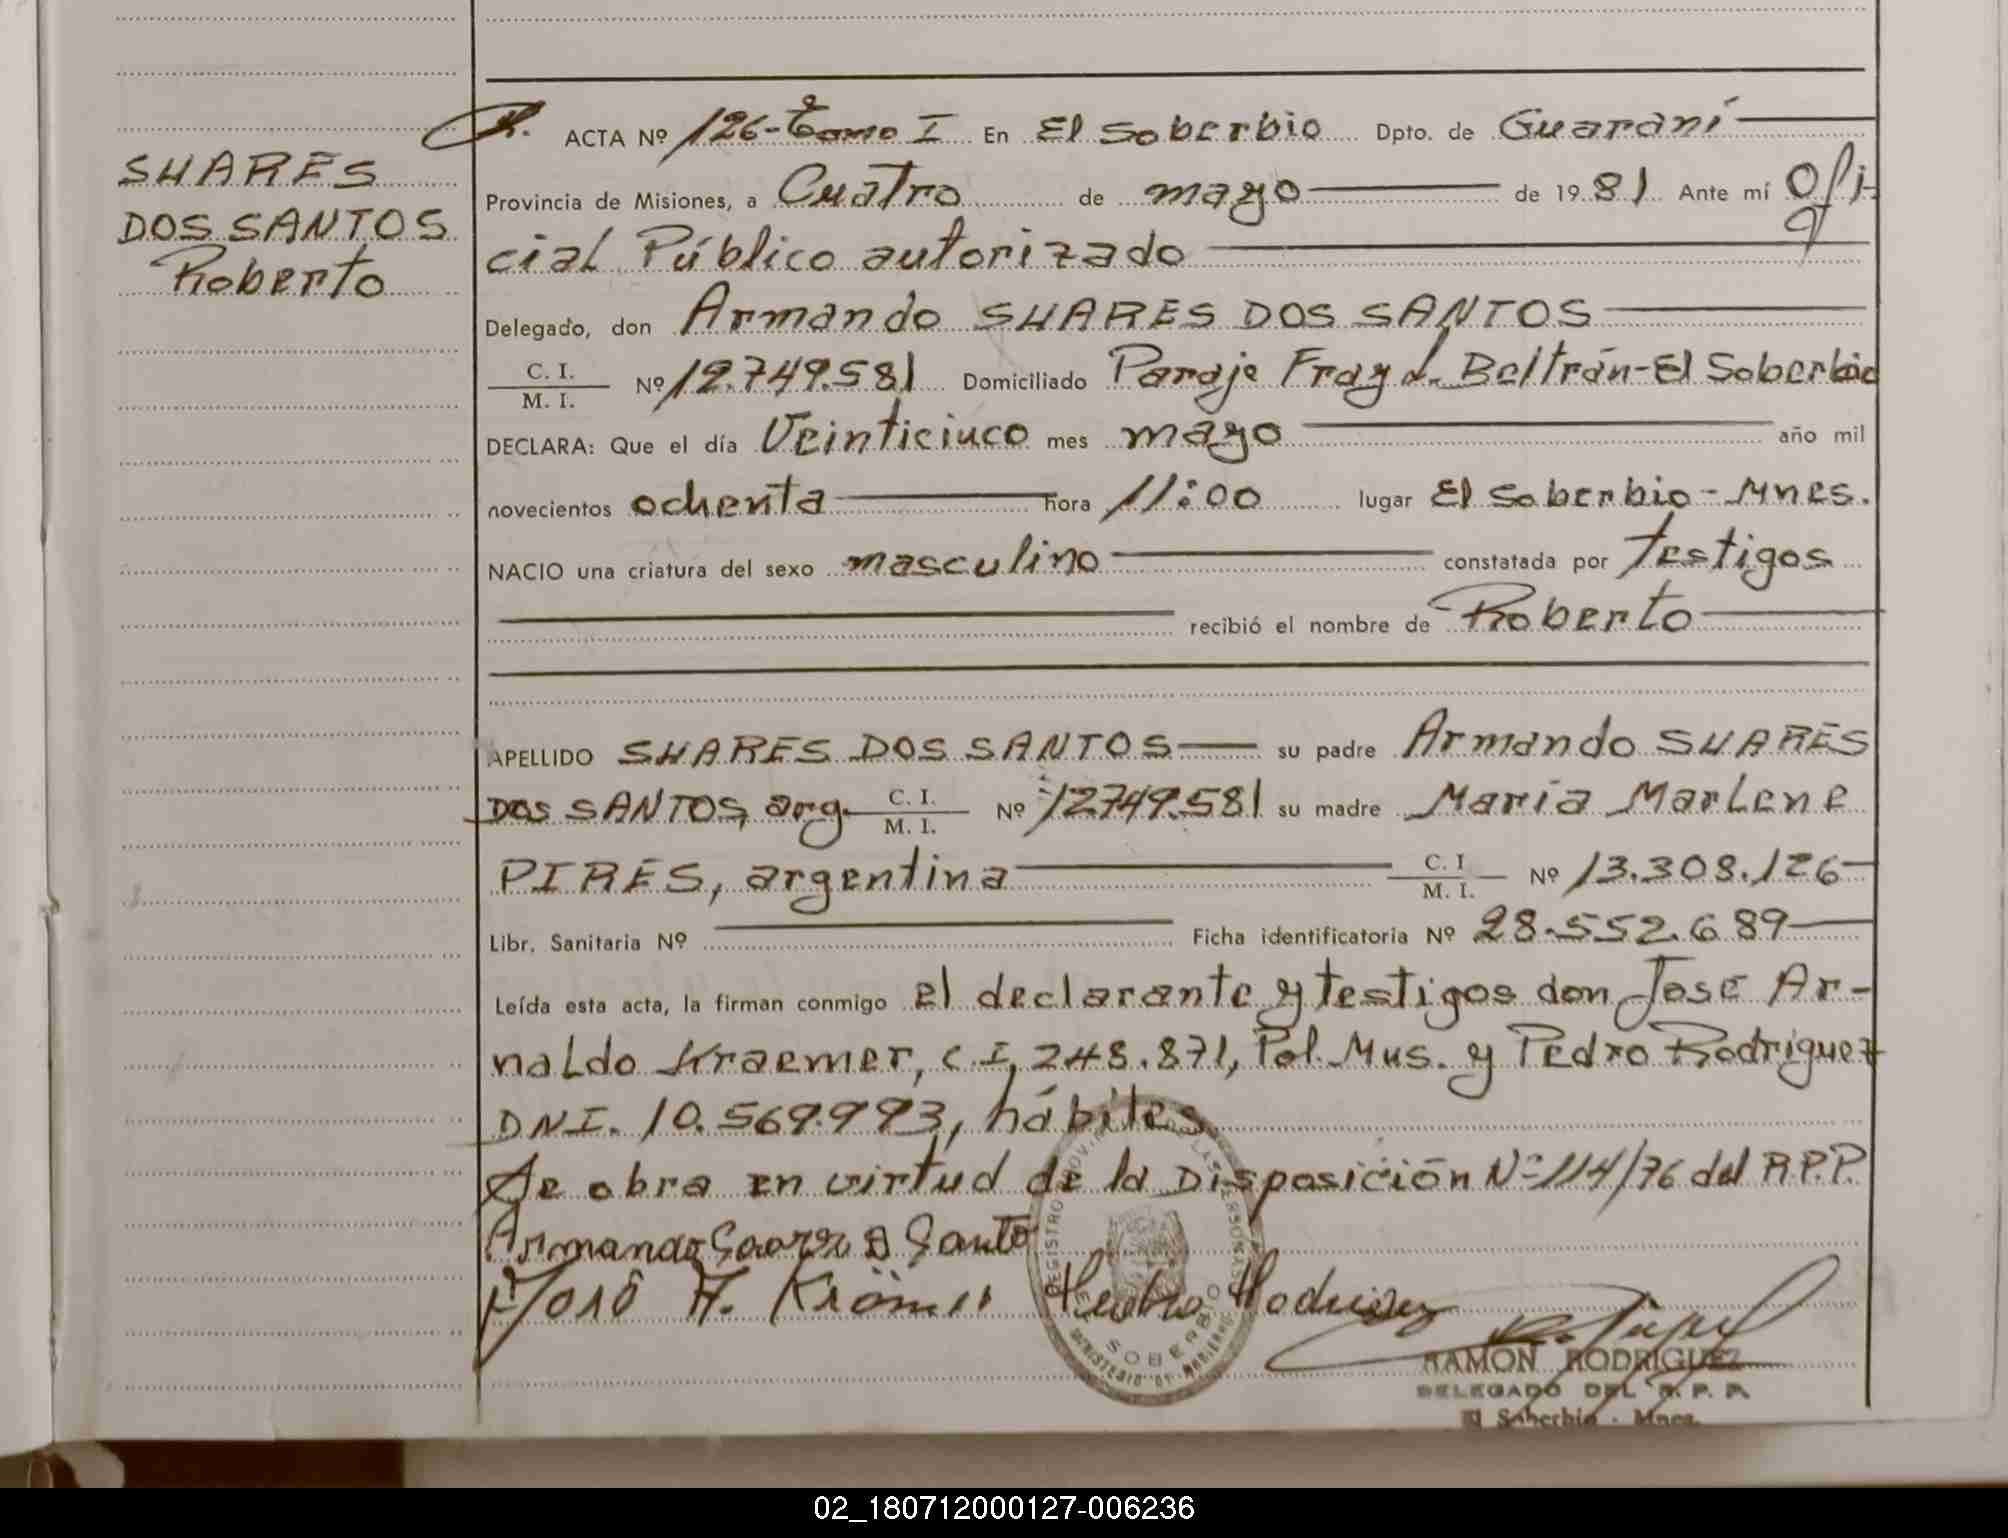 SUARES
DOS SANTOS
Roberto
ACTA Nº 126-Tomo I En El Soberbio Dpto. de Guaraní
Provincia de Misiones, a Cuatro de mayo de 1981 Ante mí Ofi-
cial Público autorizado
Delegado, don Armando SUARES DOS SANTOS
C. I.
M. I. Nº 12.749.581 Domiciliado Paraje Fray L. Beltrán-El Soberbio
DECLARA: Que el día Veinticinco mes mayo año mil
novecientos ochenta hora 11:00 lugar El Soberbio-Mnes.
NACIO una criatura del sexo masculino constatada por testigos
recibió el nombre de Roberto
APELLIDO SUARES DOS SANTOS su padre Armando SUARES
DOS SANTOS, arg. C. I.
M. I. Nº 12749.581 su madre María Marlene
PIRES, argentina C. I
M. I. Nº 13.308.126
Libr. Sanitaria Nº Ficha identificatoria Nº 28.552.689
Leída esta acta, la firman conmigo el declarante y testigos don José Ar-
naldo Kraemer, C.I. 248.871, Pol. Mns. y Pedro Rodriguez
DNI. 10.569.993, hábiles
Se obra en virtud de la Disposición Nº 114/76 del R.P.P.
Armando Soarz D Santo
José A. Krämer Pedro Rodriguez
REGISTRO PROVINCIAL DE LAS PERSONAS
EL SOBERBIO
MINISTERIO DE GOBIERNO
RAMON RODRIGUEZ
DELEGADO DEL R. P. P.
El Soberbio - Mnes.
02_180712000127-006236